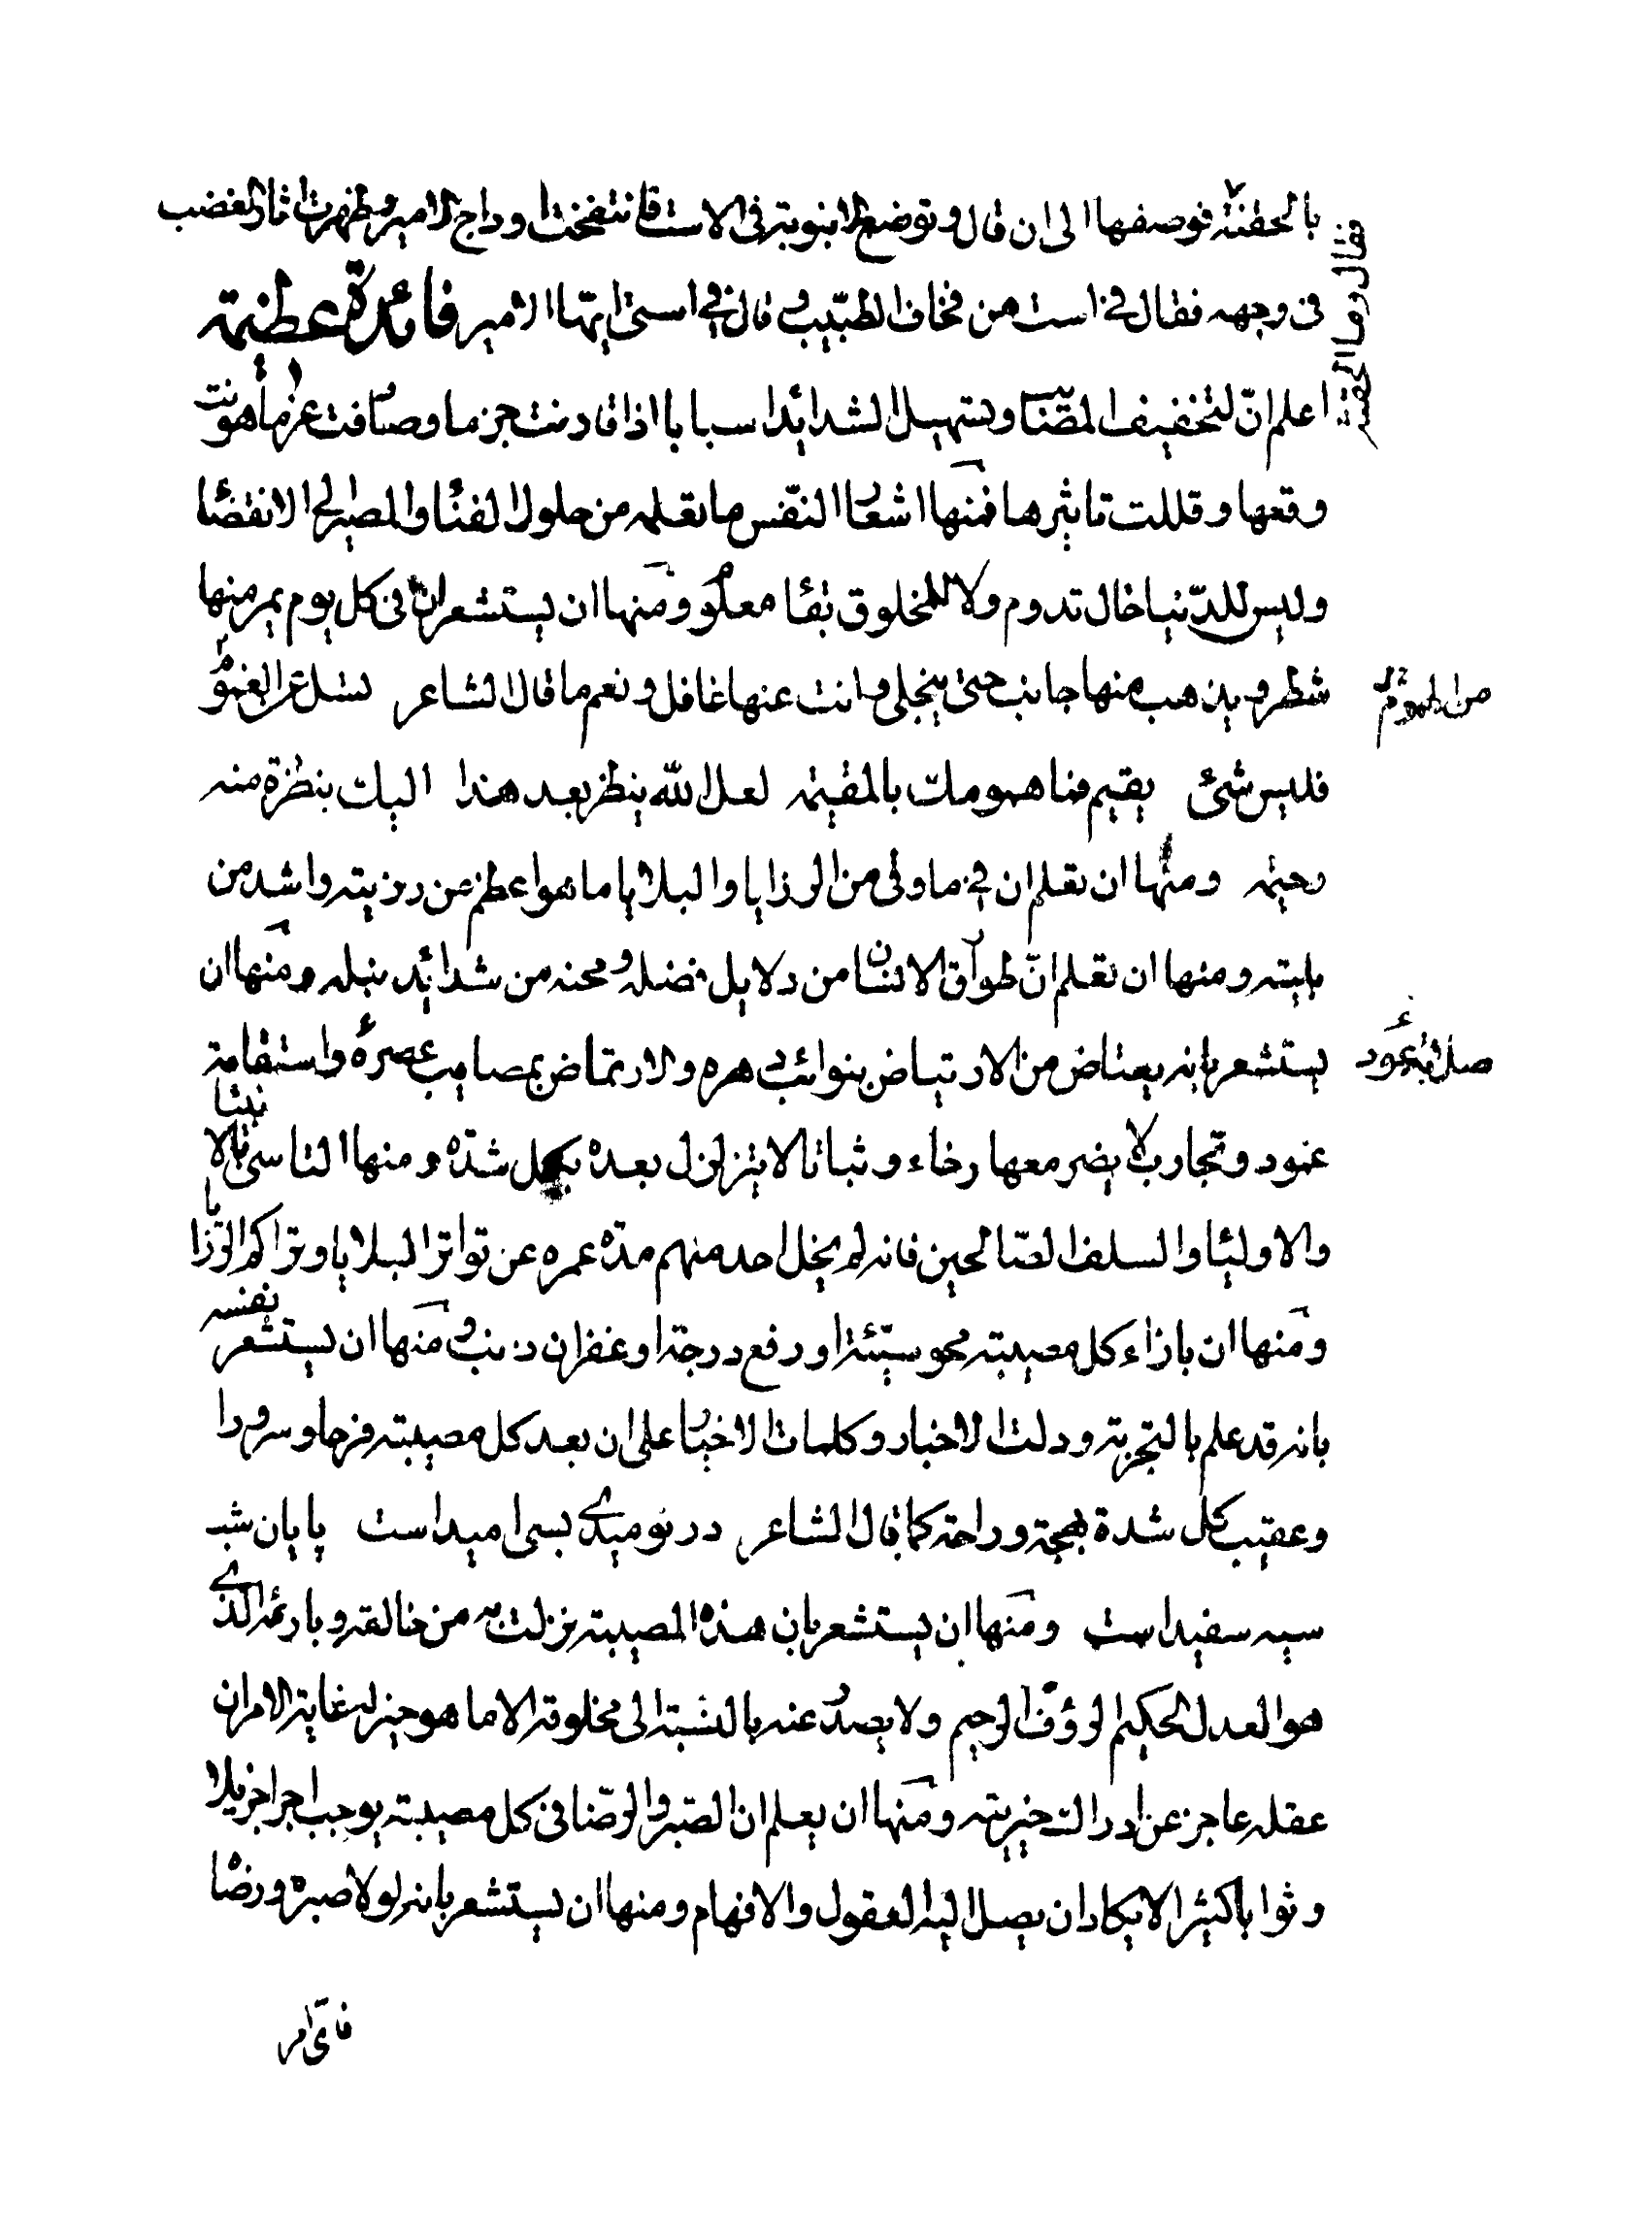 بالحقنة فوصفها الى ان قال وتوضع الانبوبة فى الاست فانتفخت اوداج الامير وظهرت اثار الغضب
فقال وما الحقنة
فى وجهه فقال فى است من فخاف الطبيب وقال فى استى ايها الامير فائدة عظيمة
اعلم ان لتخفيف المصائب وتسهيل الشدائد اسبابا اذا قارنت حزما وصادفت عزما هونت
وقعها وقللت تاثيرها فمنها اشعار النفس ما تعلمه من حلول الفناء والمصير الى الانقضاء
وليس للدنيا حال تدوم ولا لمخلوق بقاء معلوم ومنها ان يستشعر ان فى كل يوم يمر منها
شطر ويذهب منها جانب حتى ينجلى وانت عنها غافل ونعم ما قال الشاعر تسل عن الغموم
من الهموم
فليس شئ يقيم فما همومك بالمقيمه لعل الله ينظر بعد هذا اليك بنظرة منه
رحيمه ومنها ان تعلم ان فى ما وقى من الرزايا والبلايا ما هو اعظم من رزيته واشد من
بليته ومنها ان تعلم ان طوارق الانسان من دلايل فضله ومحنه من شدائد نبله ومنها ان
يستشعر بانه يعتاض من الارتياض بنوائب دهره والارتماض بمصايب عصره واستقامة
صلابة عود
عمود وتجارب لا يضر معها رخاء وثباتا لا يتزلزل بعده بكل شدة ومنها التاسى بالانبياء
والاولياء والسلف الصالحين فانه لم يخل احد منهم مدة عمره عن تواتر البلايا وتراكم الرزايا
ومنها ان بازاء كل مصيبته محو سيئة او رفع درجة او غفران ذنب ومنها ان يستشعر نفسه
بانه قد علم بالتجربة ودلت الاخبار وكلمات الاخيار على ان بعد كل مصيبته فرحا وسرورا
وعقيب كل شدة بهجة وراحة كما قال الشاعر در نوميدى بسى اميد است پايان شب
سيه سفيد است ومنها ان يستشعر بان هذه المصيبة نزلت به من خالقه وبارئه الذى
هو العدل الحكيم الرؤف الرحيم ولا يصدر عنه بالنسبة الى مخلوقه الا ما هو خير له غاية الامر ان
عقله عاجز عن ادراك خيريته ومنها ان يعلم ان الصبر والرضا فى كل مصيبته يوجب اجرا جزيلا
وثوابا كثيرا لا يكاد ان يصل اليه العقول والافهام ومنها ان يستشعر بانه لولا صبره ورضاه
فاى امر